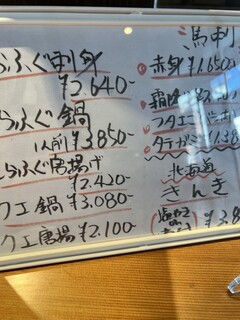 らふぐ刺身
¥2.640-
らふぐ鍋
1人前¥3.850-
らふぐ唐揚げ
¥2.420-
クエ鍋¥3.080-
クエ唐揚¥2.100-
馬刺
赤身¥1.650
霜降
フタエゴ
タテガミ¥1.38
北海道
きんき
¥3.8